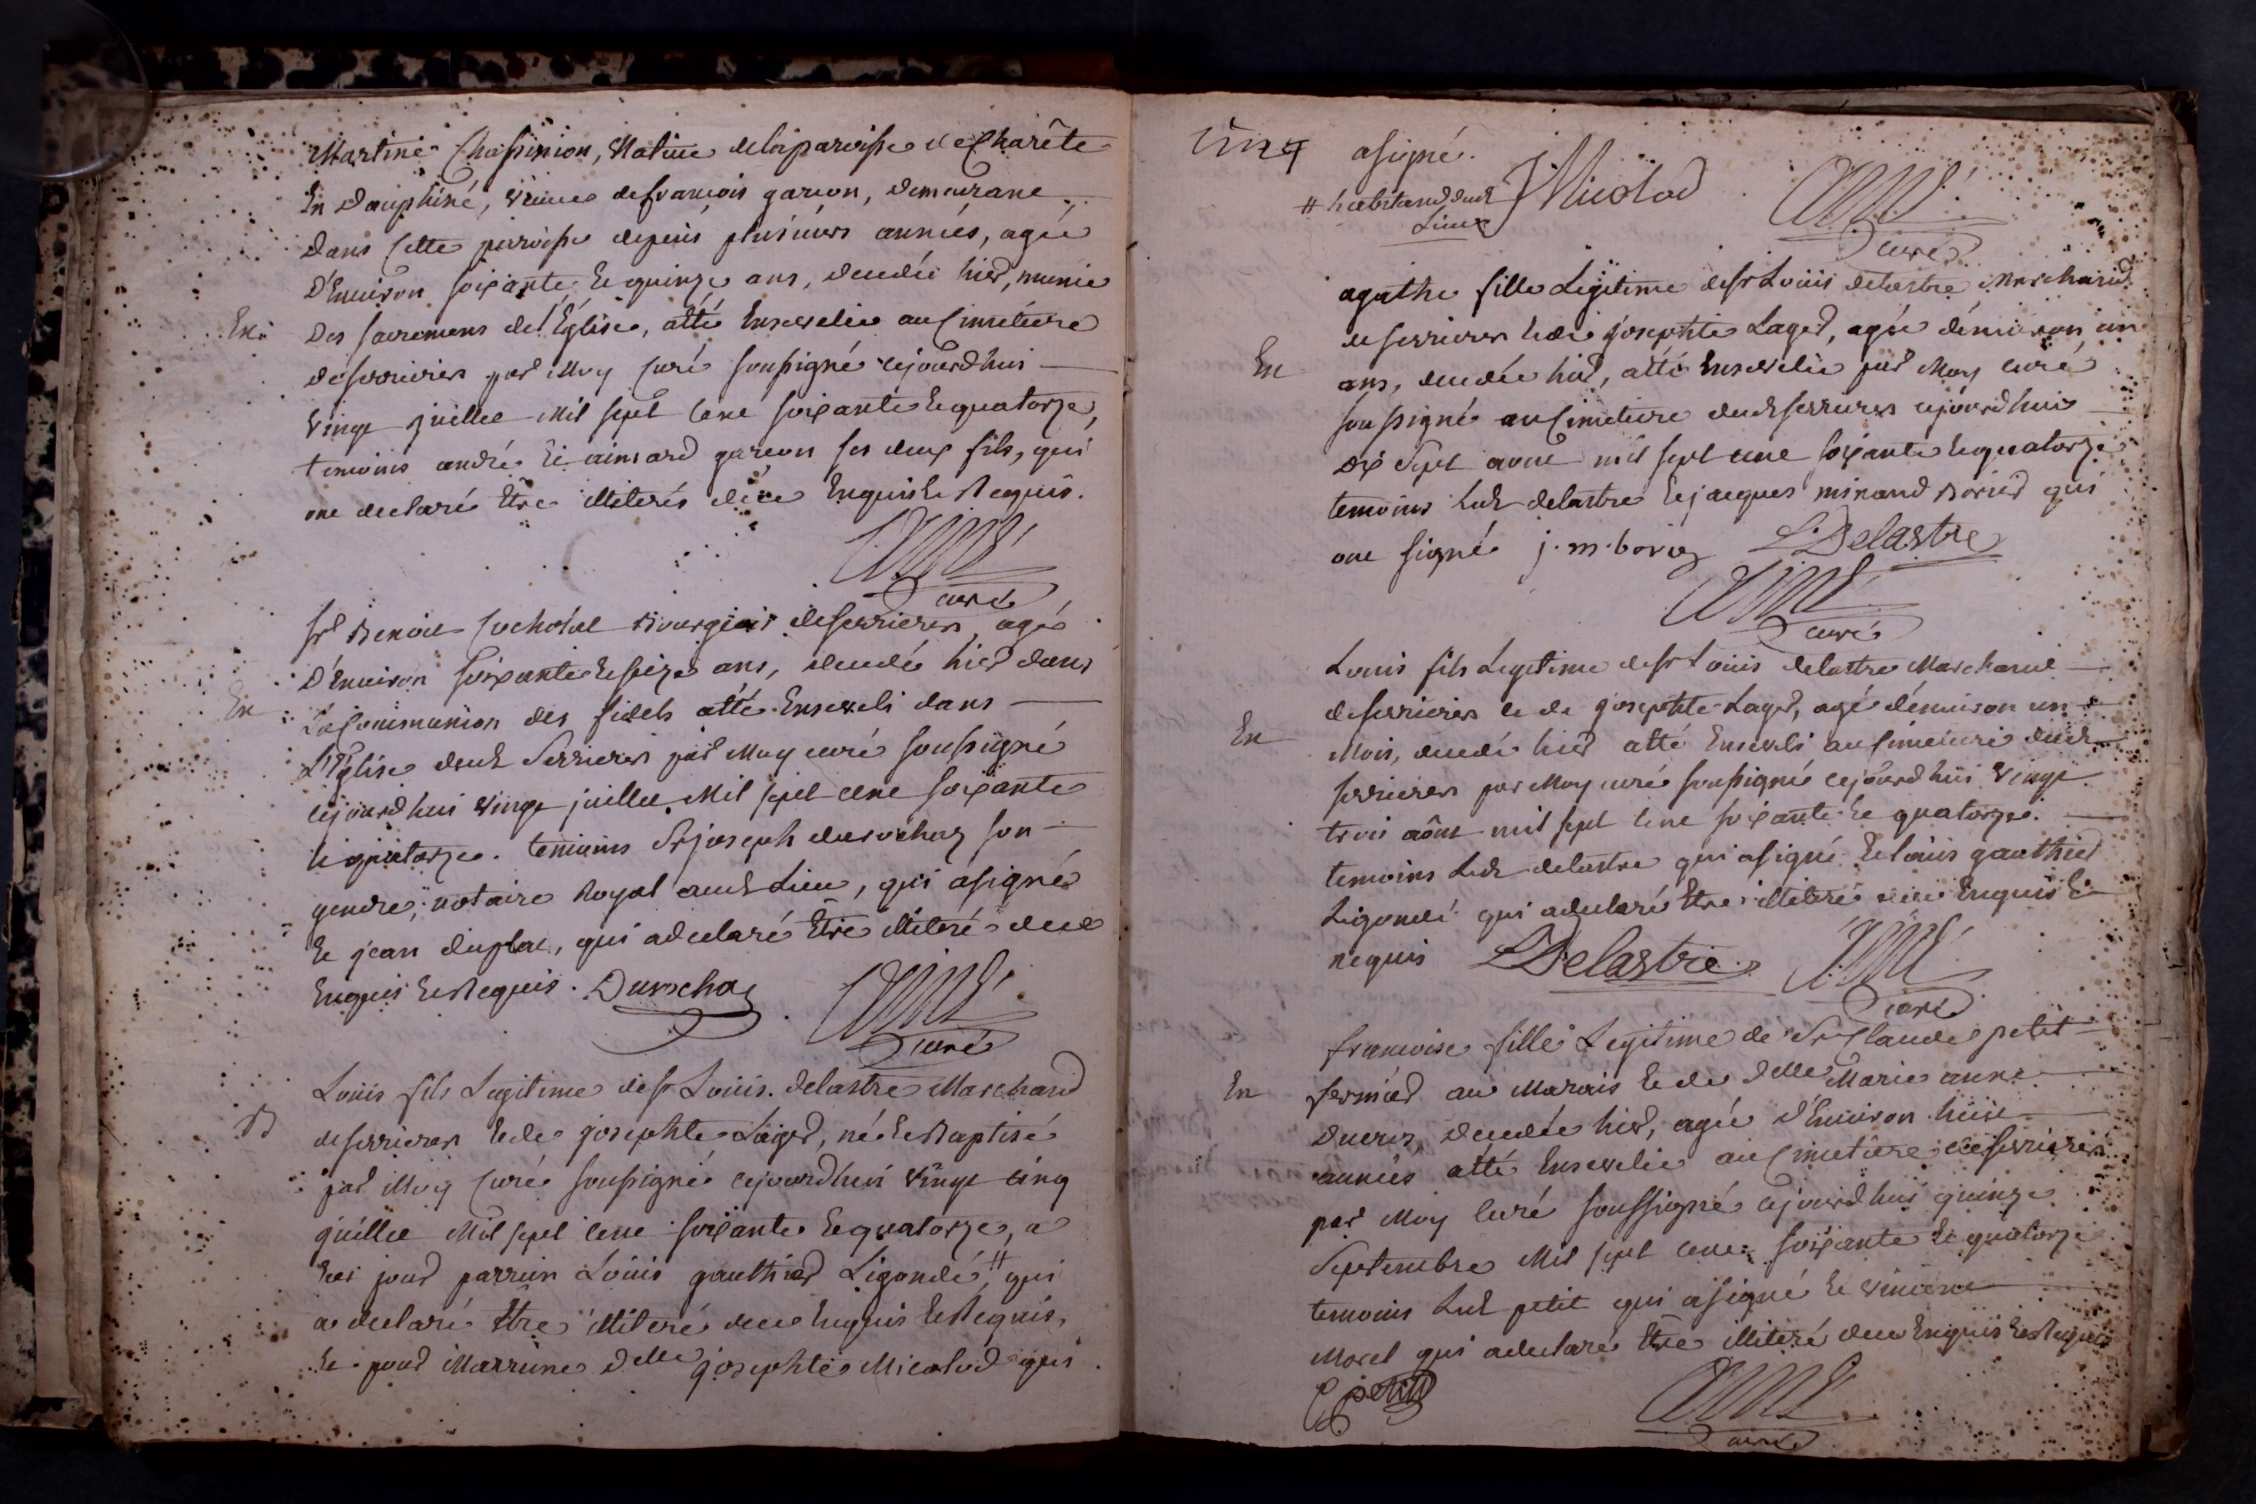 Martine Chassinion, Native de la paroisse de Charête
En Dauphiné, veuve de françois garçon, demeurant
Dans Cette paroisse depuis plusieurs années, agée
D'Environ soixante Et quinze ans, decedée hier, munie
En
Des sacremens de L'Eglise, atté Ensevelie au Cimetiere
de serrieres par Moy Curé soussigné cejourdhui
vingt juillet Mil sept Cent soixante Et quatorze,
temoins andré Et aimard garçon ses deux fils, qui
ont declaré Etre illiterés de ce Enquis Et Requis.
curé
Sr Benoit Cochotat Bourgeois de serrieres, agé
D'Environ soixante Et seize ans, decedé hier dans
En
La Communion des fidels atté Enseveli dans
L'Eglise dudt Serrieres par Moy curé soussigné
cejourdhui vingt juillet Mil sept cent soixante
Et quatorze. temoins Sr joseph durochaz son
gendre, notaire Royal audt Lieu, qui asigné
Et jean duplat, qui adeclaré Etre illiteré de ce
Enquis Et Requis. Durochaz
curé
Louis fils Legitime de sr Louis delastre Marchand
B
de serrieres Et de josephte Lager, né Et Baptisé
par Moy Curé soussigné cejourdhui vingt cinq
juillet Mil sept cent soixante Et quatorze, a
Eté pour parrein Louis gauthier Ligondé, # qui
a declaré Etre illiteré de ce Enquis Et Requis,
Et pour Marrine Delle josephte Micolod qui
cinq
asigné.
# habitand dudt
Lieu
Micolod
curé
agathe fille Legitime de sr Louis delastre Marchand
de serrieres Et de josephte Lager, agée d'énviron un
En
ans, decedée hier, atté Ensevelie par Moy curé
soussigné au Cimetiere dudt serrieres cejourdhui
dix sept aout mil sept cent soixante Et quatorze
temoins Ledt delastre Et jacques minand Borier qui
ont signé j. m. borier L. Delastre
curé
Louis fils Legitime de sr Louis delastre Marchand
de serrieres Et de josephte Lager, agé d'énviron un
En
Mois, decedé hier atté Enseveli au Cimetiere dudt
serrieres par Moy curé soussigné cejourdhui vingt
trois aôut mil sept cent soixante Et quatorze.
temoins Ledt delastre qui asigné Et Louis gauthier
Ligondé qui adeclaré Etre illiteré de ce Enquis Et
requis L Delastre
curé
francoise fille Legitime de Sr Claude petit
En
fermier au Marais Et de Delle Marie anne
decedée hier, agée d'Environ huit
années atté Ensevelie au Cimetiere de serrieres
par Moy Curé soussigné cejourdhui quinze
Septembre Mil sept cent soixante Et quatorze
temoins Ledt petit qui asigné Et vincent
Morel qui adeclaré Etre illiteré de ce Enquis Et Requis
C petit
curé